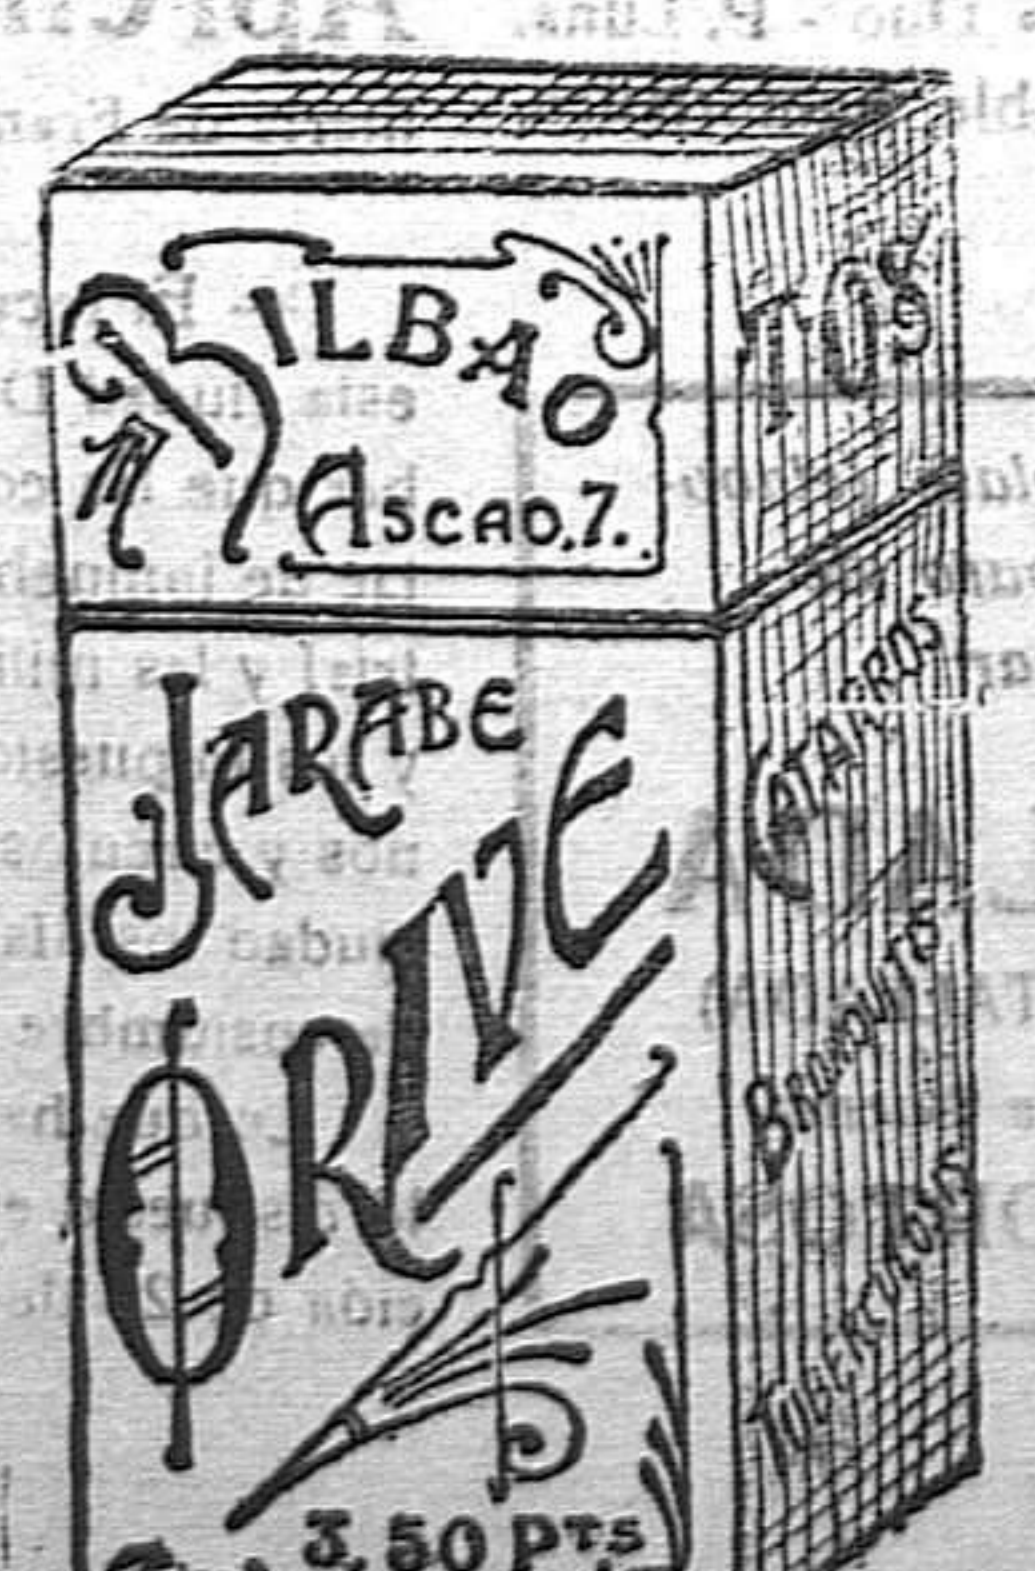 BILBAO
ASCAO, 7.
JARABE
ORIVE
3,50 PTS
TOS
CATARROS
BRONQUITIS
TUBERCULOSIS